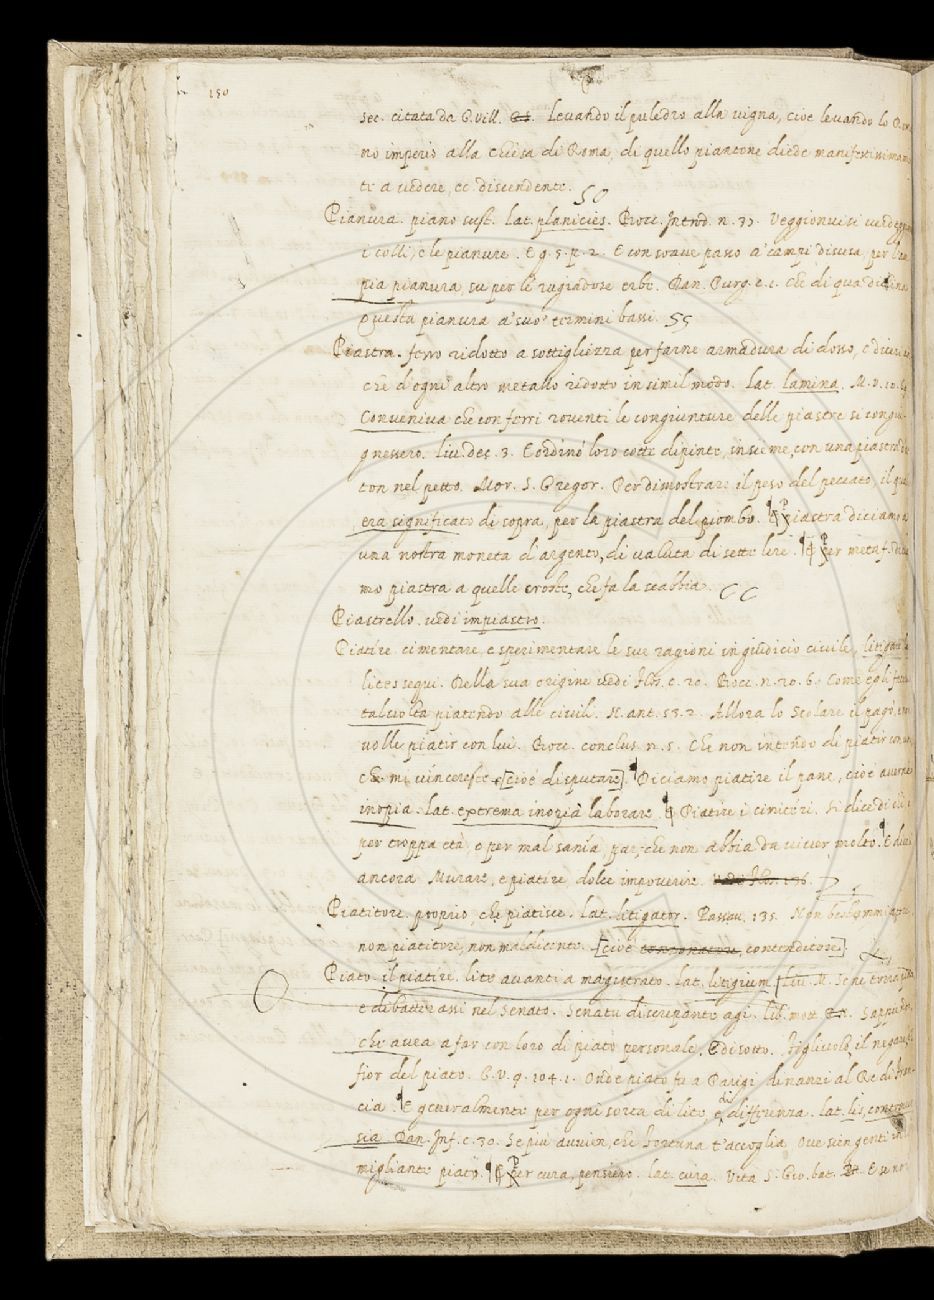 150
sec. citata da G. Vill. Levando il puledro alla vigna, cioè levando lo
no imperio alla Chiesa di Roma, di quello piantone diede
te a vedere, ec. discendente. 50
Pianura. piano sust. lat. planicies. Bocc. Introd. n. 37. Veggionvisi
i colli, e le pianure. E g. 5. p. 2. E con soave passo a' campi discesa, per
pia pianura, su per le rugiadose erbe. Dan. Purg. c. 1. Che di qua
Questa pianura a' suo' termini bassi. 55
Piastra. ferro ridotto a sottigliezza per farne armadura di dosso, e
che d'ogni altro metallo ridotto in simil modo. Lat. lamina. M. V. 10.
Conveniva che con ferri roventi le congiunture delle piastre si
gnessero. Liv. dec. 3. E ordinò loro cotte dipinte, insieme, con una
ton nel petto. Mor. S. Gregor. Per dimostrare il peso del peccato, il
era significato di sopra, per la piastra del piombo. ¶ Piastra
una nostra moneta d'argento, di valuta di sette lire. ¶ Per metaf.
mo piastra a quelle croste, che fa la scabbia. CC
Piastrello. vedi impiastro.
Piatire. cimentare, e sperimentare le sue ragioni in giudicio civile,
lites sequi. Della sua origine vedi Flos. c. 20. Bocc. n. 20. 6. Come egli
talvolta piatendo alle civili. N. ant. 53. 2. Allora lo Scolare il pagò,
volle piatir con lui. Bocc. conclus. n. 5. Che non intendo di piatir
che mi vincereste [cioè disputare]. Diciamo piatire il pane, cioè averne
inopia. lat. extrema inopia laborare. Piatire i cimiteri. si dice di
per troppa età, e per mal sanía par, che non abbia da viver molto. E
ancora Murare, e piatire, dolce impoverire.
Piatitore. proprio, che piatisce. Lat. litigator. Passav. 135.
non piatitore, non maldicente. [cioè contenditore].
Piato. il piatire. lite avanti a magistrato. lat. litigium. Liv. M.
e dibatterassi nel Senato. Senatu discreponte agi. lib. mott.
che avea a far con loro di piato personale, E di sotto. Figliuolo, il
fior del piato. G. V. 9. 104. 1. Onde piato fu a Parigi dinanzi al Re di
cia. E generalmente per ogni sorta di lite, o di differenza. lat. lis,
sia Dan. Inf. c. 30. Se più avvien che fortuna t'accoglia Ove sien genti in
migliante piato. ¶ Per cura, pensiero. lat. cura. Vita S. Gio. bat.